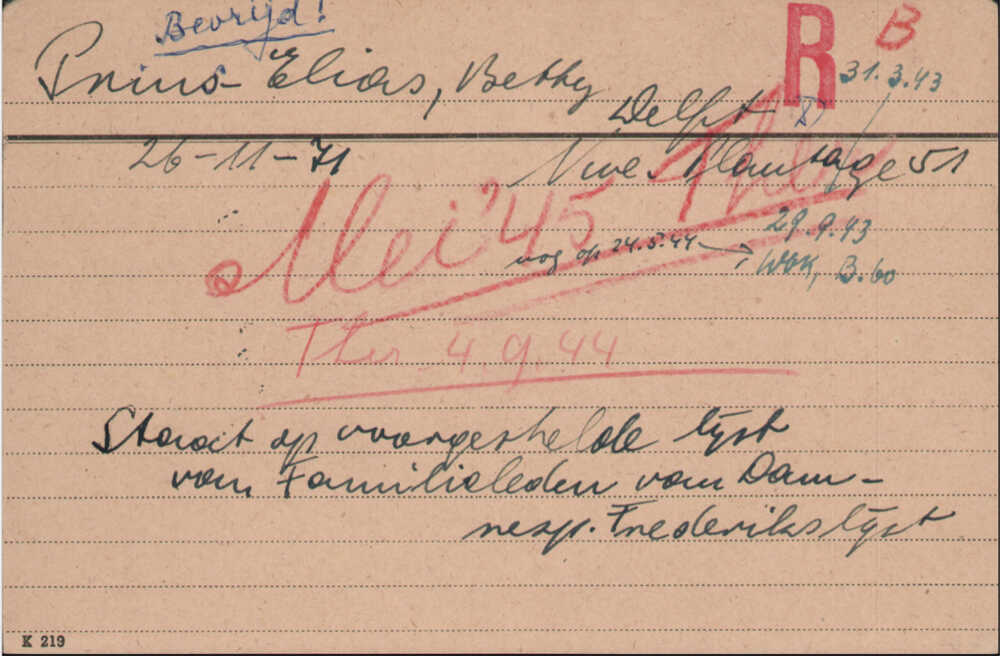 Bevrijd!
R B
Prins-Elias, Betty
31.3.43
Delft
26-11-71
Nwe. Plantage 51
Mei '45 Ther
29.9.43
nog op 24.5.44
WBK, B.60
Ther 4.9.44
Staat op voorgestelde lijst
van Familieleden van Dam-
resp. Frederikslijst
K 219